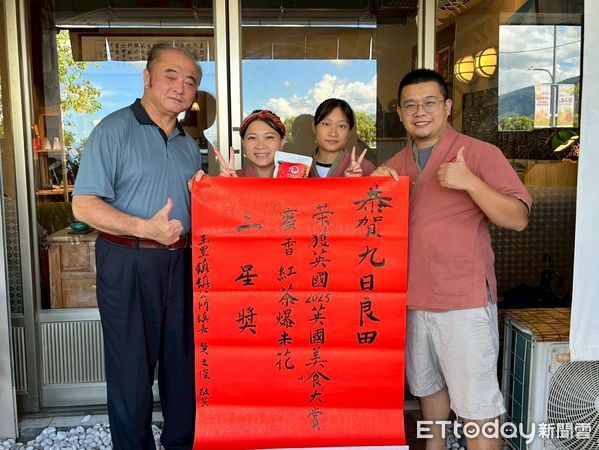 恭賀九日良田
榮獲英國2025英國美食大賞
「蜜香紅茶爆米花」
二星獎
玉里鎮鎮公所鎮長 龔文俊 敬賀
ETtoday新聞雲